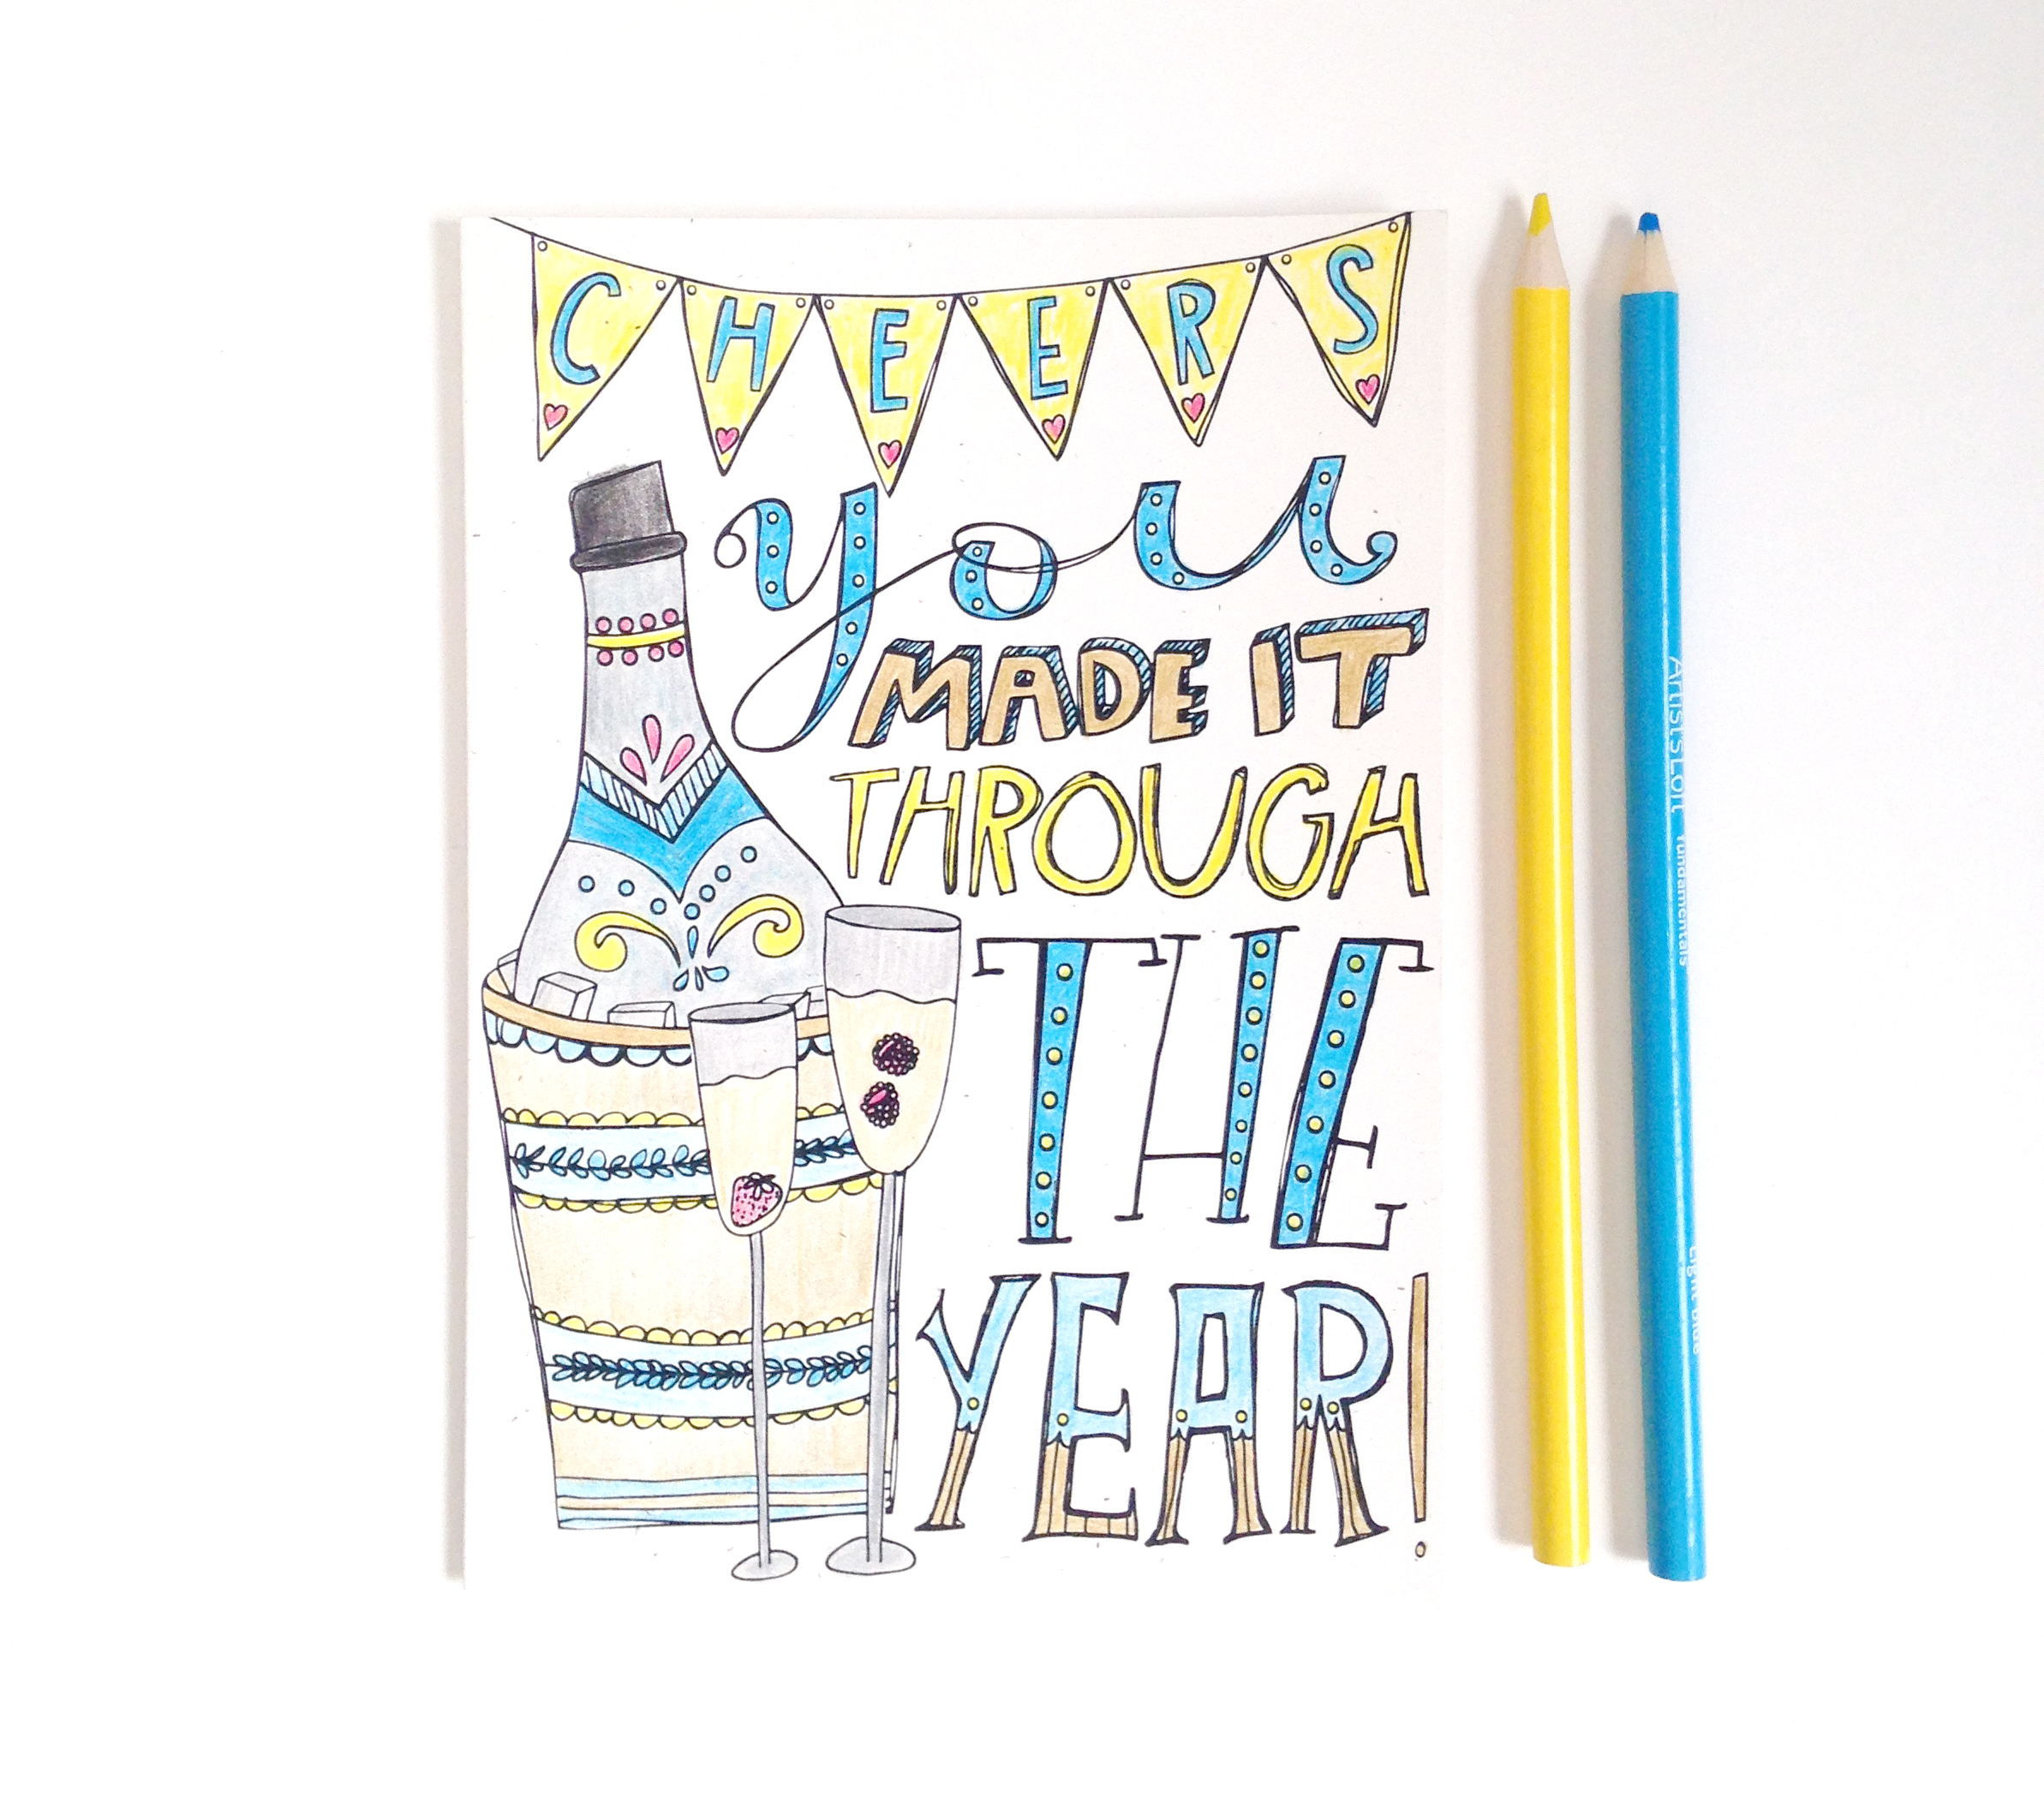 CHEERS
you
MADE IT
THROUGH
THE
YEAR!
Artist's Loft fundamentals
Light Blue